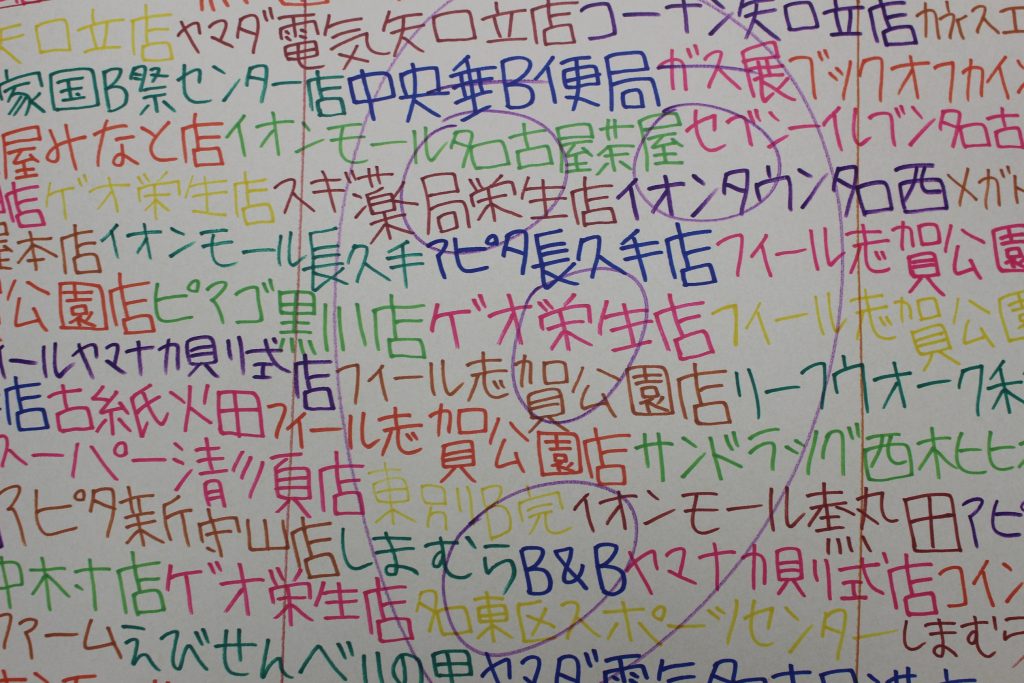 矢口立店ヤマダ電気矢口立店コーナン矢口立店カネスエ
家国B祭センター店中央垂B便局ガス展ブックオフカイン
屋みなと店イオンモール名古屋茶屋セブンーイレブン名古
店ゲオ栄生店スギ薬局栄生店イオンタウン名西メガト
屋本店イオンモール長久手アピタ長久手店フィール志賀公園
公園店ピアゴ黒川店ゲオ栄生店フィール志賀公園
ィールヤマナカ貝リ式店フィール志賀公園店リーフウオーク
店古紙火田フィール志賀公園店サンドラッグ西木ヒヒ
スーパー清リ須店東別B完イオンモール
アピタ新守山店しまむらB&Bヤマナカ貝リ式店コイン
中木寸店ゲオ栄生店名東区スポーツセンターしまむら
ファームえびせんべいの里ヤマダ電気名古屋港店